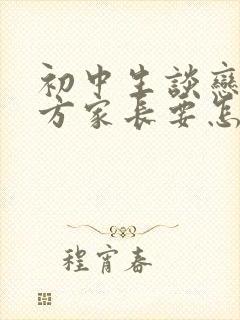 初中生談戀
方家長要怎
程宵春